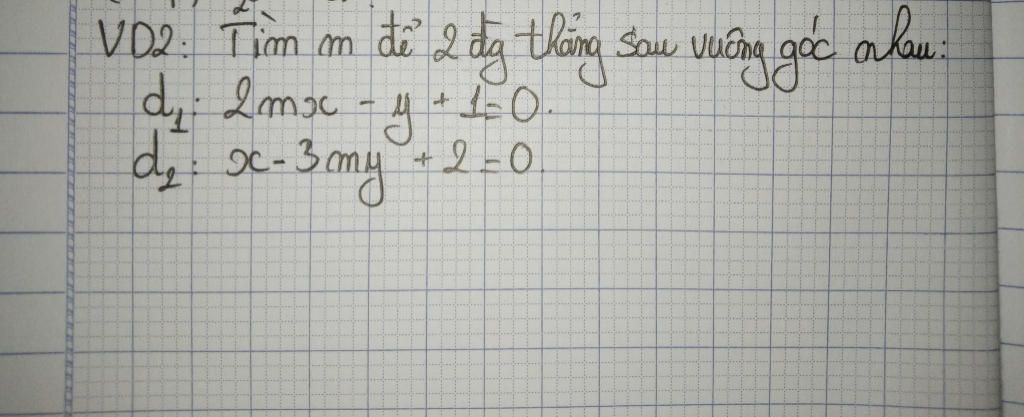 VD2: Tìm m để 2 đg thẳng sau vuông góc nhau:
d₁: 2mx - y + 1 = 0.
d₂: x - 3my + 2 = 0.